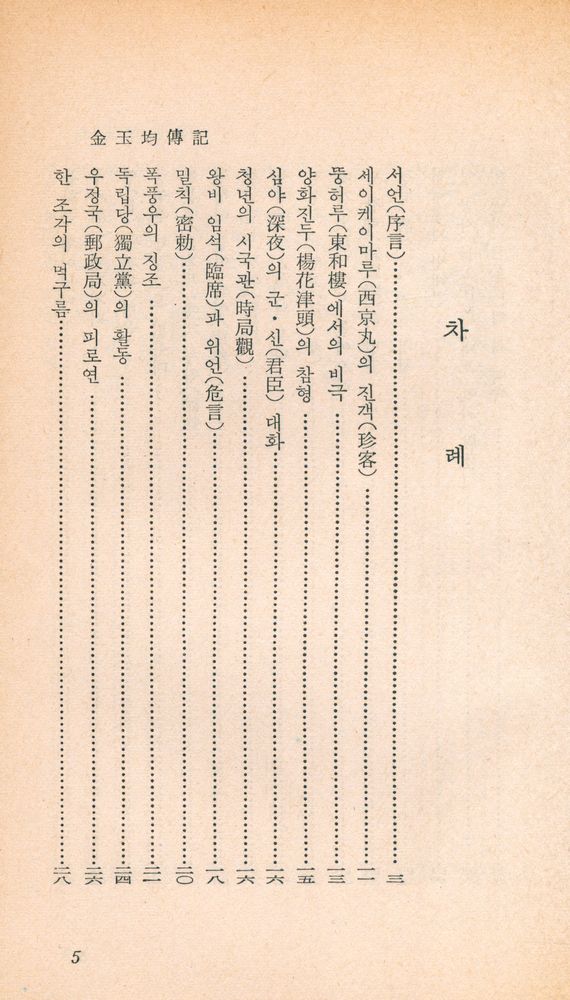 金玉均傳記
차례
서언(序言)……三
세이케이마루(西京丸)의 진객(珍客)……一一
뚱허루(東和樓)에서의 비극……一三
양화진두(楊花津頭)의 참형……一五
심야(深夜)의 군·신(君臣) 대화……一六
청년의 시국관(時局觀)……一六
왕비 임석(臨席)과 위언(危言)……一八
밀칙(密勅)……二〇
폭풍우의 징조……二一
독립당(獨立黨)의 활동……二四
우정국(郵政局)의 피로연……二六
한 조각의 먹구름……二八
5